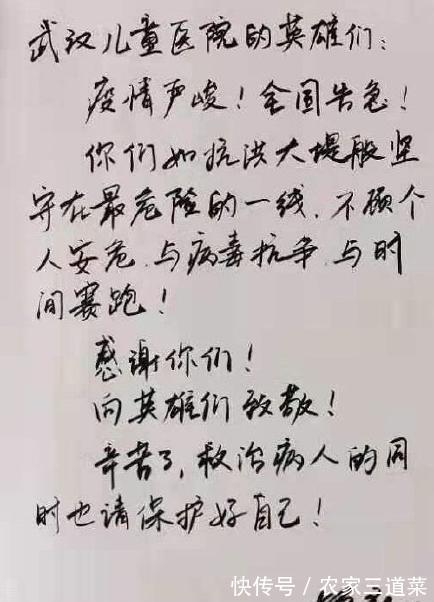 武汉儿童医院的英雄们：
疫情严峻！全国告急！
你们如抗洪大堤般坚
守在最危险的一线，不顾个
人安危，与病毒抗争，与时
间赛跑！
感谢你们！
向英雄们致敬！
辛苦了，救治病人的同
时也请保护好自己！
快传号／农家三道菜